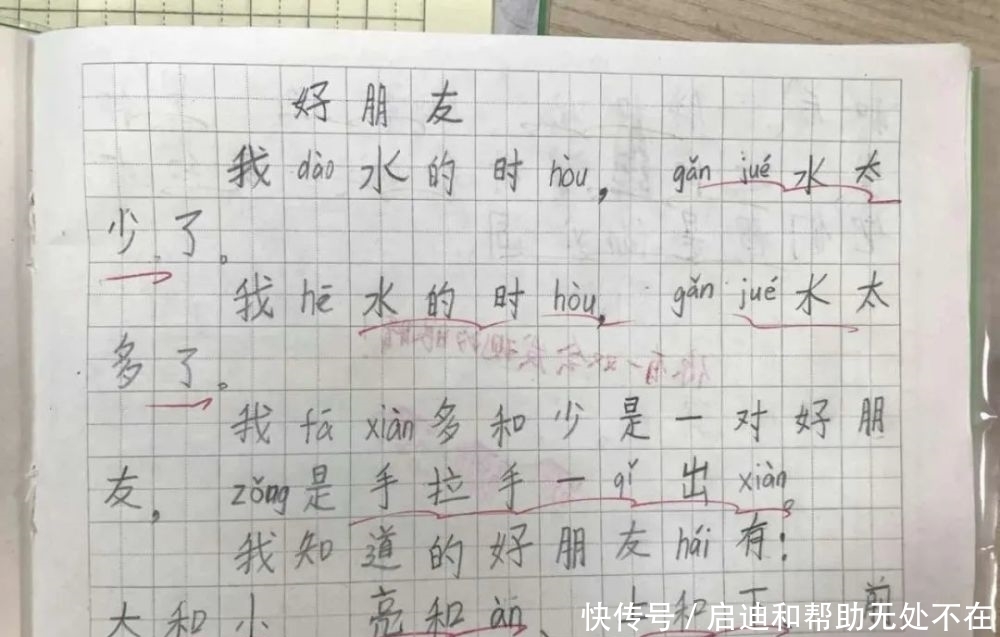 好朋友
我dào水的时hòu，gǎn jué水太
少了。
我hē水的时hòu，gǎn jué水太
多了。
我fā xiàn多和少是一对好朋
友，zǒng是手拉手一qǐ出xiàn。
我知道的好朋友hái有：
大和小、亮和àn、
快传号/启迪和帮助无处不在